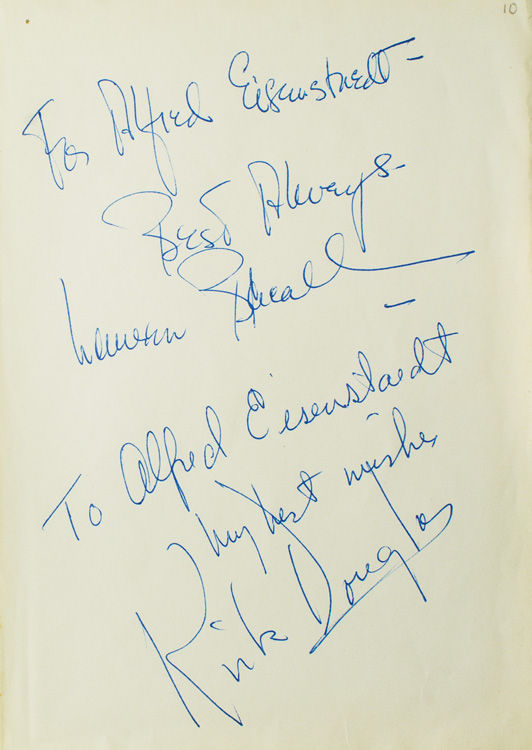 10
For Alfred Eisenstaedt -
Best Always -
Lauren Bacall
-
To Alfred Eisenstaedt
My best wishes
Kirk Douglas